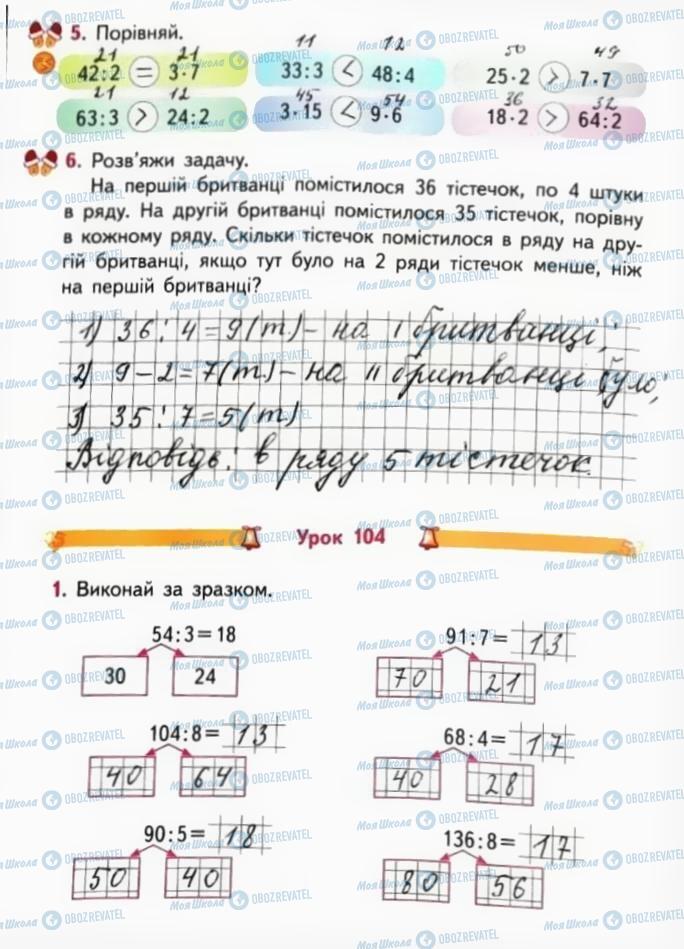 5. Порівняй.
21 21 11 12 50 49
42:2 = 3·7 33:3 < 48:4 25·2 > 7·7
21 12 45 54 36 32
63:3 > 24:2 3·15 < 9·6 18·2 > 64:2
6. Розв'яжи задачу.
На першій бритванці помістилося 36 тістечок, по 4 штуки
в ряду. На другій бритванці помістилося 35 тістечок, порівну
в кожному ряду. Скільки тістечок помістилося в ряду на дру-
гій бритванці, якщо тут було на 2 ряди тістечок менше, ніж
на першій бритванці?
1) 36:4=9(т)– на І бритванці;
2) 9–2=7(т)–на ІІ бритванці було;
3) 35:7=5(т)
Відповідь: в ряду 5 тістечок.
Урок 104
1. Виконай за зразком.
54:3=18 91:7= 13
30 24 70 21
104:8= 13 68:4= 17
40 64 40 28
90:5= 18 136:8= 17
50 40 80 56
МояШкола OBOZREVATEL